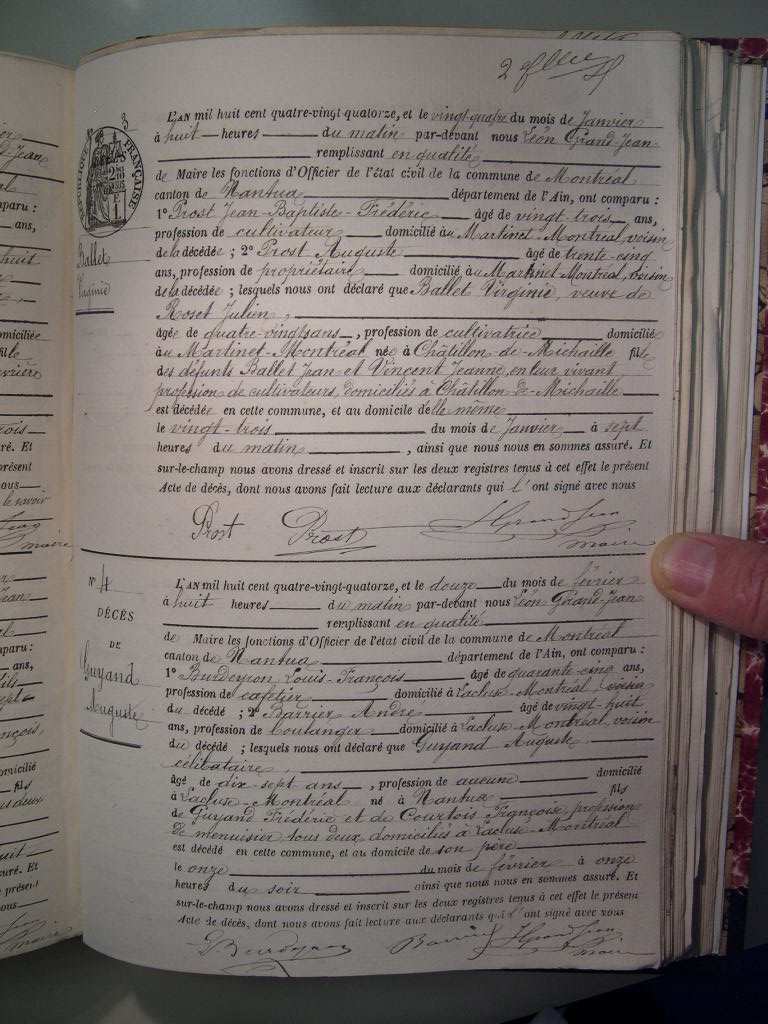 2
3
RÉPUBLIQUE FRANÇAISE
Ballet
Virginie
L'AN mil huit cent quatre-vingt quatorze, et le vingt-quatre du mois de Janvier
à huit heures du matin par-devant nous Léon Grand-Jean
remplissant en qualité
de Maire les fonctions d'Officier de l'état civil de la commune de Montréal
canton de Nantua département de l'Ain, ont comparu :
1º Prost Jean-Baptiste-Frédéric âgé de vingt-trois ans,
profession de cultivateur domicilié au Martinet-Montréal, voisin
de la décédée ; 2º Prost Auguste âgé de trente-cinq
ans, profession de propriétaire domicilié au Martinet Montréal, voisin
de la décédée ; lesquels nous ont déclaré que Ballet Virginie, veuve de
Roset Julien,
âgée de quatre-vingts ans, profession de cultivatrice domiciliée
au Martinet-Montréal née à Châtillon-de-Michaille fille
des défunts Ballet Jean et Vincent Jeanne, en leur vivant
profession de cultivateurs, domiciliés à Châtillon-de-Michaille
est décédée en cette commune, et au domicile d'elle même
le vingt-trois du mois de Janvier à sept
heures du matin, ainsi que nous nous en sommes assuré. Et
sur-le-champ nous avons dressé et inscrit sur les deux registres tenus à cet effet le présent
Acte de décès, dont nous avons fait lecture aux déclarants qui l'ont signé avec nous
Prost Prost L Grand-Jean
maire
Nº 4
DÉCÈS
DE
Guyand
Auguste
L'AN mil huit cent quatre-vingt-quatorze, et le douze du mois de février
à huit heures du matin par-devant nous Léon Grand-Jean
remplissant en qualité
de Maire les fonctions d'Officier de l'état civil de la commune de Montréal
canton de Nantua département de l'Ain, ont comparu :
1º Burdeyron Louis-François âgé de quarante-cinq ans,
profession de cafetier domicilié à Lacluse-Montréal voisin
du décédé ; 2º Barrier André âgé de vingt-huit
ans, profession de boulanger domicilié à Lacluse-Montréal, voisin
du décédé ; lesquels nous ont déclaré que Guyand Auguste
célibataire,
âgé de dix-sept ans, profession de aucune domicilié
à Lacluse-Montréal né à Nantua fils
de Guyand Frédéric et de Courtois Françoise, profession
de menuisier, tous deux domiciliés à Lacluse-Montréal
est décédé en cette commune, et au domicile de son père
le onze du mois de février à onze
heures du soir ainsi que nous nous en sommes assuré. Et
sur-le-champ nous avons dressé et inscrit sur les deux registres tenus à cet effet le présent
Acte de décès, dont nous avons fait lecture aux déclarants qui l'ont signé avec nous
Burdeyron Barrier L Grand-Jean
maire